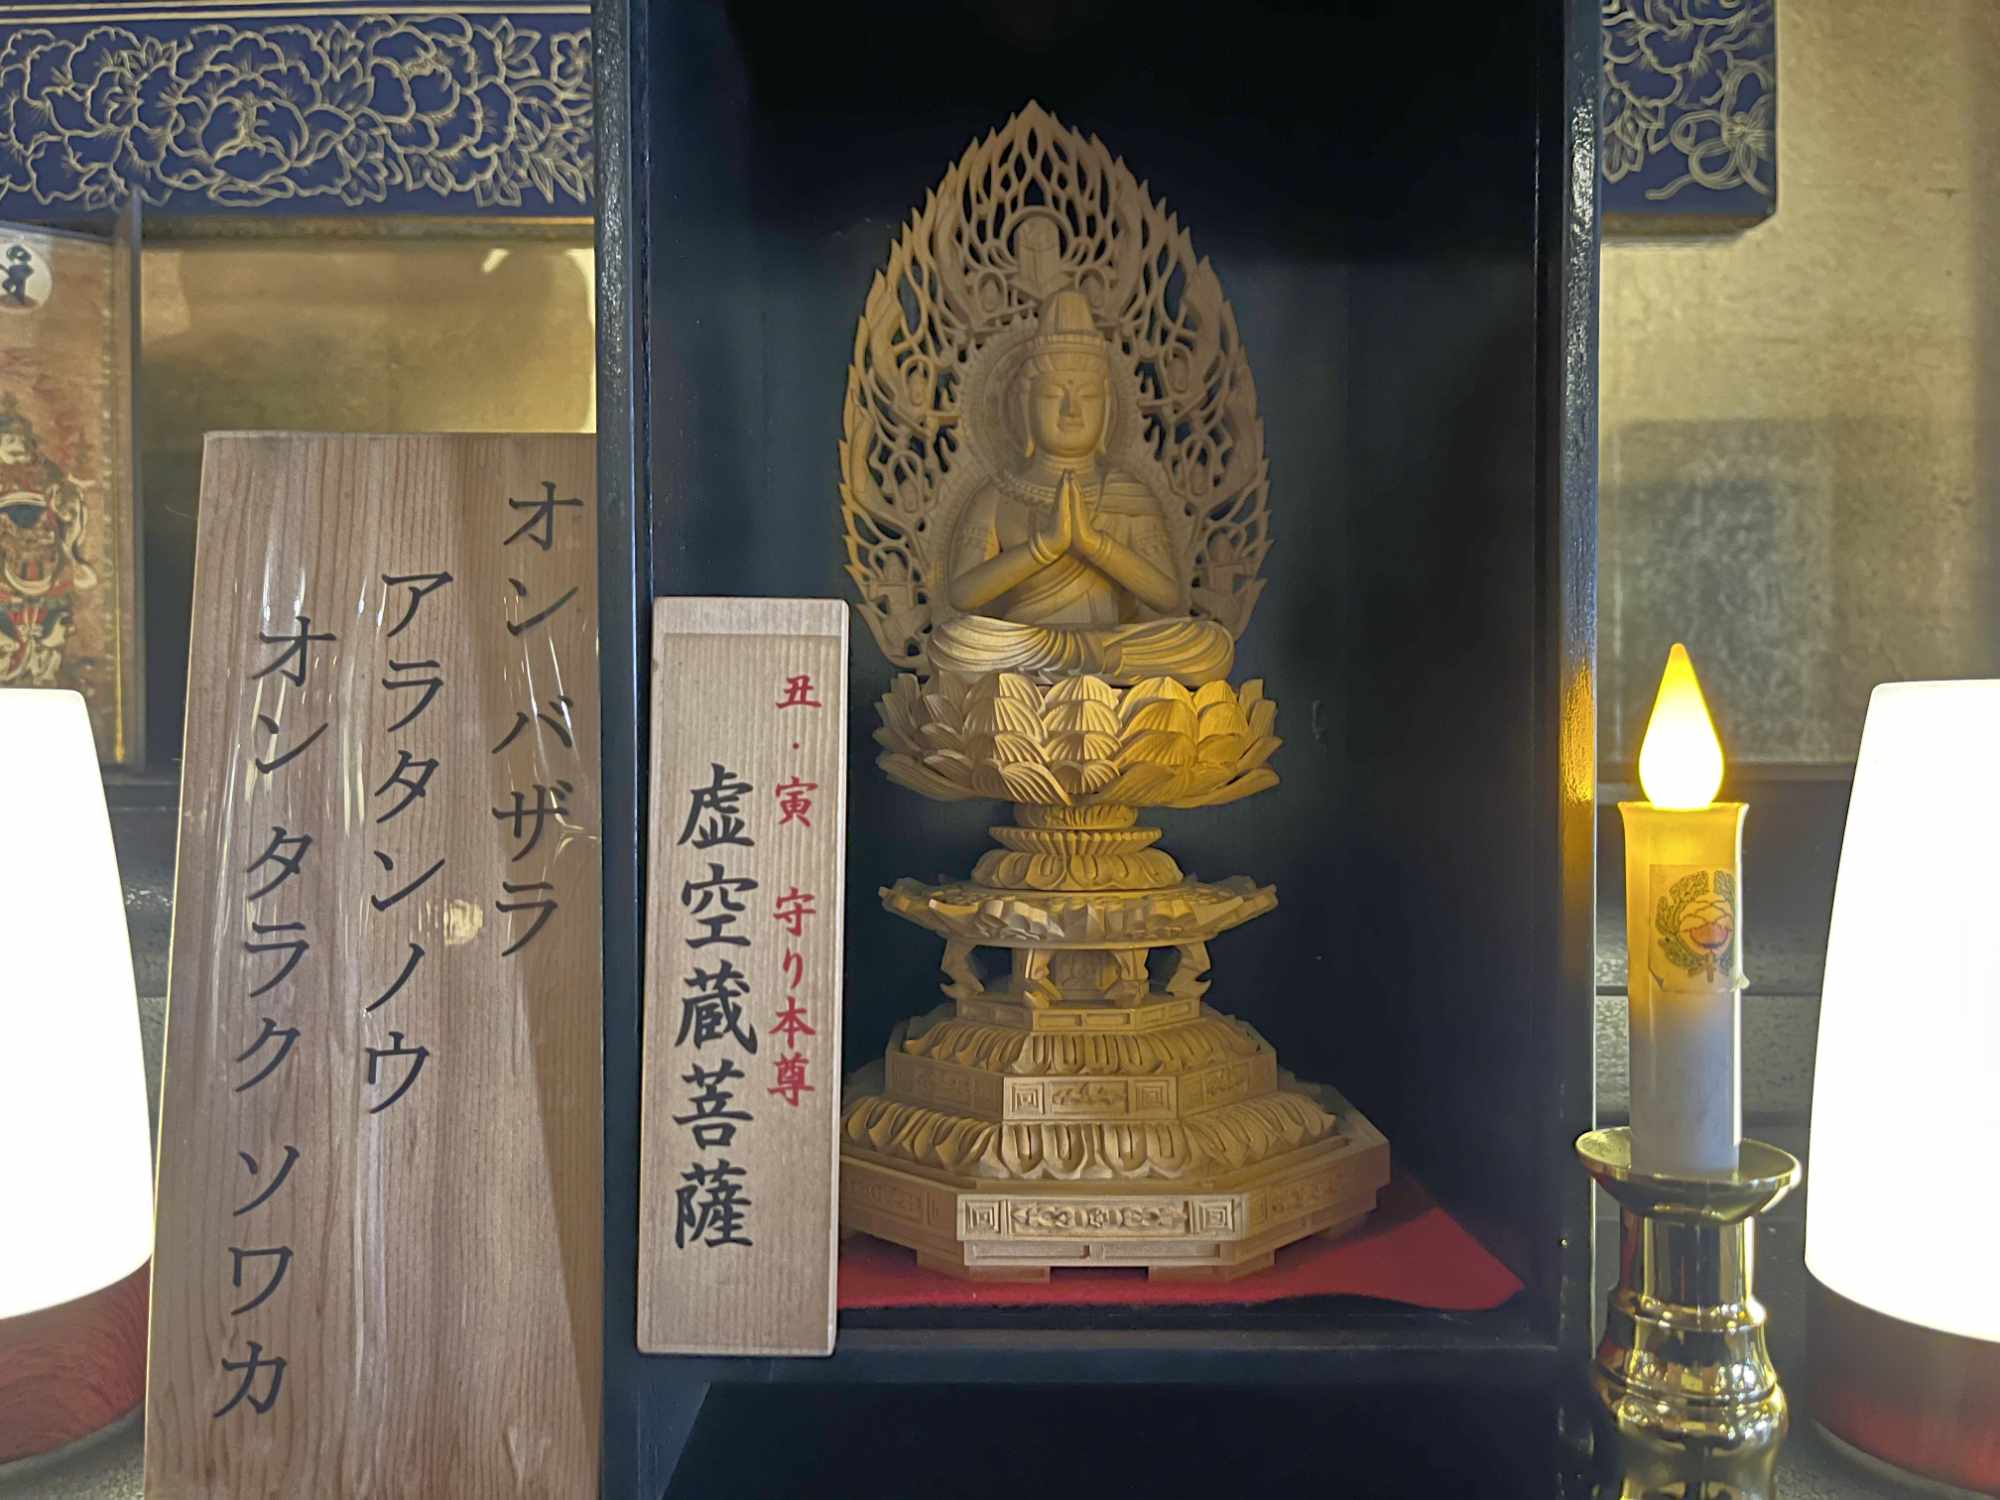 オン バザラ
アラタンノウ
オン タラク ソワカ
丑・寅 守り本尊
虚空蔵菩薩